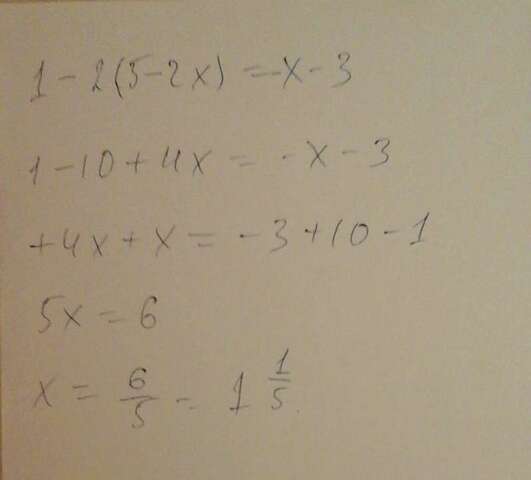 1-2(5-2x) =-x-3
1-10+4x = -x-3
+4x+x = -3+10-1
5x = 6
x = 6/5 = 1 1/5